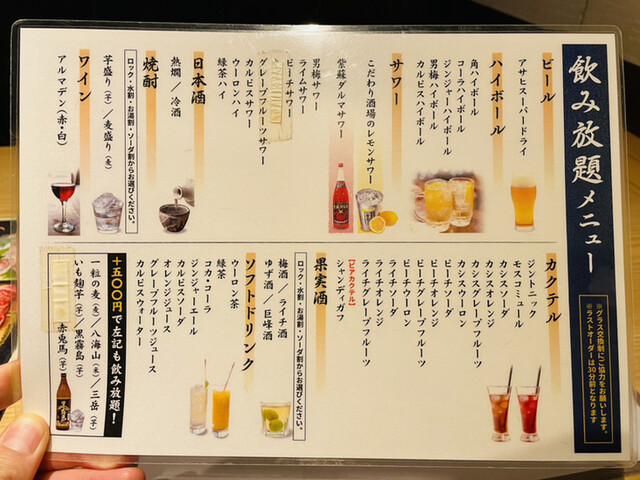 飲み放題メニュー
※グラス交換制にご協力をお願いします。
※ラストオーダーは30分前となります
ビール
アサヒスーパードライ
ハイボール
角ハイボール
コーラハイボール
ジンジャーハイボール
男梅ハイボール
カルピスハイボール
サワー
こだわり酒場のレモンサワー
紫蘇ダルマサワー
男梅サワー
ライムサワー
ピーチサワー
グレープフルーツサワー
カルピスサワー
ウーロンハイ
緑茶ハイ
日本酒
熱燗／冷酒
焼酎
ロック・水割・お湯割・ソーダ割からお選びください。
芋盛り（芋）／麦盛り（麦）
ワイン
アルマデン（赤・白）
カクテル
ジントニック
モスコミュール
カシスソーダ
カシスオレンジ
カシスグレープフルーツ
カシスウーロン
ピーチソーダ
ピーチオレンジ
ピーチグレープフルーツ
ピーチウーロン
ライチソーダ
ライチオレンジ
ライチグレープフルーツ
【ビアカクテル】
シャンディガフ
果実酒
ロック・水割・お湯割・ソーダ割からお選びください。
梅酒／ライチ酒
ゆず酒／巨峰酒
ソフトドリンク
ウーロン茶
緑茶
コカ・コーラ
ジンジャーエール
カルピスソーダ
オレンジジュース
グレープフルーツジュース
カルピスウォーター
＋五〇〇円で左記も飲み放題！
一粒の麦（麦）／八海山（米）／三岳（芋）
いも麹芋（芋）／黒霧島（芋）
赤兎馬（芋）